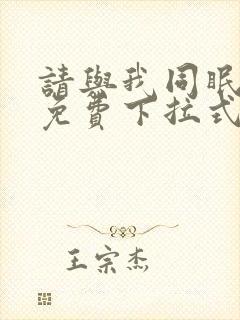 請與我同眠
免費下拉式
王宗杰